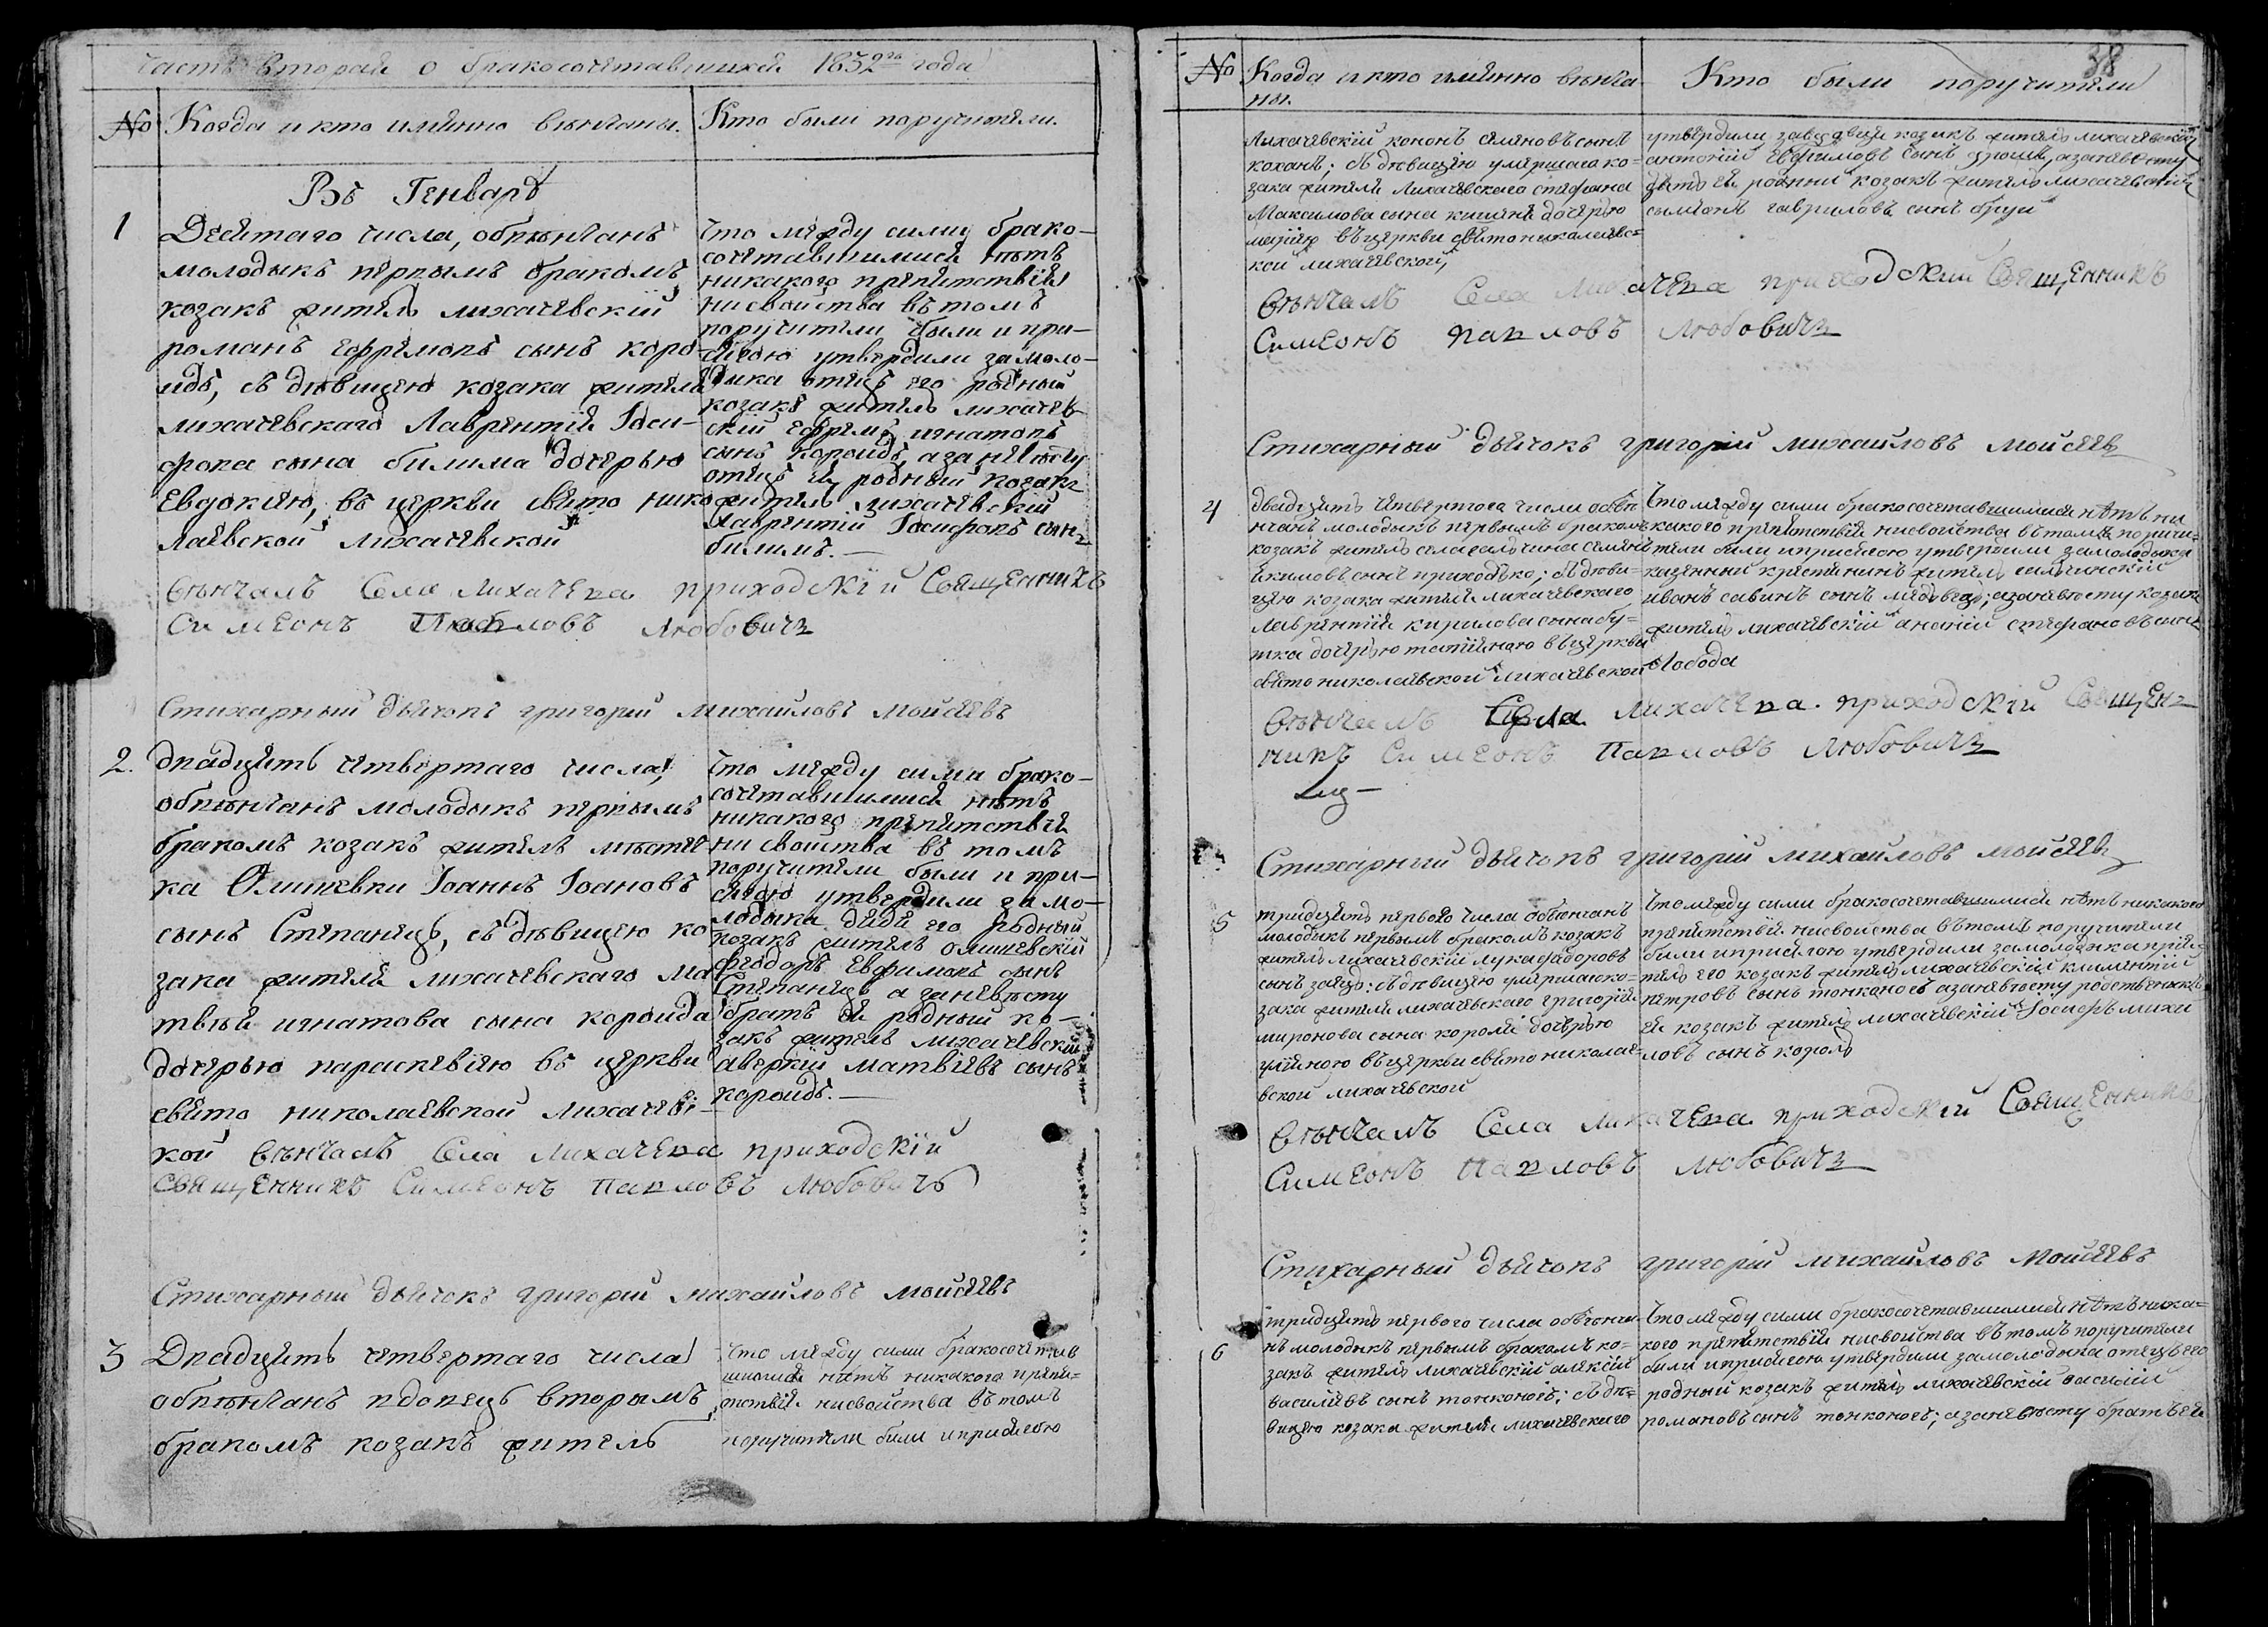 Часть вторая о бракосочетавшихся 1832го года
№ Когда и кто имянно венчаны. Кто были поручители.
Въ Генварѣ
1
Десятаго числа, обвѣнчанъ
молодыкъ первымъ бракомъ
козакъ житель лихачевскій
романъ ефремовъ сынъ коро-
идъ, съ дѣвицею козака жителя
лихачевскаго Лаврентія Іоси-
фова сына билима дочерью
Евдокіею, въ церкви свято нико
лаевской лихачевской
что между сими брако-
сочетавшимися нѣтъ
никакого препятствія
ни свойства въ томъ
поручители были и при-
сягою утвердили за моло-
дыка отецъ его родный
козакъ житель лихачев-
скій ефремъ игнатовъ
сынъ короидъ, а за невѣсту
отецъ ея родный козакъ
житель лихачевскій
Лаврентій Іосифовъ сынъ
билимъ.—
Вѣнчалъ Села Лихачева приходскій Священникъ
Симеонъ Павловъ Любовичъ
Стихарный дьячокъ григорій михайловъ мойсеевъ
2.
Двадцять четвертаго числа,
обвѣнчанъ молодыкъ первымъ
бракомъ козакъ житель мѣстеч
ка Олишевки Іоаннъ Іоановъ
сынъ Степанецъ, съ дѣвицею ко-
зака жителя лихачевскаго ма
твѣя игнатова сына короида
дочерью параскевіею въ церкви
свято николаевской лихачевс-
кой
что между сими брако-
сочетавшимися нѣтъ
никакого препятствія
ни свойства въ томъ
поручители были и при-
сягою утвердили за мо-
лодыка дядя его родный
козакъ житель олишевскій
феодоръ Евфимовъ сынъ
Степанецъ а за невѣсту
братъ ея родный ко-
закъ житель лихачевскій
аверкій матвіевъ сынъ
короидъ.—
Вѣнчалъ Села Лихачева приходскій
Священникъ Симеонъ Павловъ Любовичъ
Стихарный дьячокъ григорій михайловъ мойсеевъ
3
Двадцять четвертаго числа
обвѣнчанъ вдовецъ вторымъ
бракомъ козакъ житель
что между сими бракосочетав
шимися нѣтъ никакого препя-
тствія нисвойства въ томъ
поручители били иприсягою
38
№ Когда и кто имянно венча-
ны.
Кто были поручители
Лихачевскій кононъ семеновъ сынъ
коханъ; съ дѣвицею умершаго ко-
зака жителя Лихачевского стефана
Максимова сына дочерью
маріею въ церкви святониколаевс-
кой лихачевской,
утвердили завдовца козакъ житель лихачевскій
антоній Евфимовъ сынъ, азаневѣсту
зять ея родный козакъ житель лихачевскій
симеонъ гавриловъ сынъ
Вѣнчалъ Села Лихачева приходскій Священникъ
Симеонъ Павловъ Любовичъ
Стихарный дьячокъ григорій михайловъ мойсеевъ
4
двадцять четвертого числа обвѣ
нчанъ молодыкъ первымъ бракомъ
козакъ житель села семенъ
екимовъ сынъ приходько; съ дѣви-
цею козака жителя лихачевскаго
Лаврентія кирилова сына бу-
тка дочерью татіяною въ церкви
святониколаевской лихачевской
что между сими бракосочетавшимися нѣтъ ни
какого препятствія нисвойства въ томъ поручи-
тели били иприсягою утвердили замолодыка
казенный крестянинъ житель
иванъ савинъ сынъ медведь; азаневѣсту козакъ
житель лихачевскій ананій стефановъ сынъ
Лобода
Вѣнчалъ Села Лихачева приходскій Священ-
никъ Симеонъ Павловъ Любовичъ
Стихарный дьячокъ григорій михайловъ мойсеевъ
5
тридцять первого числа обвѣнчанъ
молодыкъ первымъ бракомъ козакъ
житель лихачевскій лука фадоровъ
сынъ заецъ: съ дѣвицею умершаго ко-
зака жителя лихачевскаго григорія
миронова сына короля дочерью
уліяною въ церкви свято николае-
вской лихачевской
что между сими бракосочетавшимися нѣтъ никакого
препятствія нисвойства въ томъ поручители
били иприсягою утвердили замолодыка прія-
тель его козакъ житель лихачевскій климентій
петровъ сынъ тонконогъ азаневѣсту родственникъ
ея козакъ житель лихачевскій Іосифъ михаи
ловъ сынъ король
Вѣнчалъ Села Лихачева приходскій Священникъ
Симеонъ Павловъ Любовичъ
Стихарный дьячокъ григорій михайловъ мойсеевъ
6
тридцять первого числа обвѣнча
нъ молодыкъ первымъ бракомъ ко-
закъ житель лихачевскій алексій
василіевъ сынъ тонконогъ; съ дѣ-
вицею козака жителя лихачевскаго
что между сими бракосочетавшимися нѣтъ ника-
кого препятствія нисвойства въ томъ поручители
били иприсягою утвердили замолодыка отецъ его
родный козакъ житель лихачевскій василій
романовъ сынъ тонконогъ; азаневѣсту братъ ея